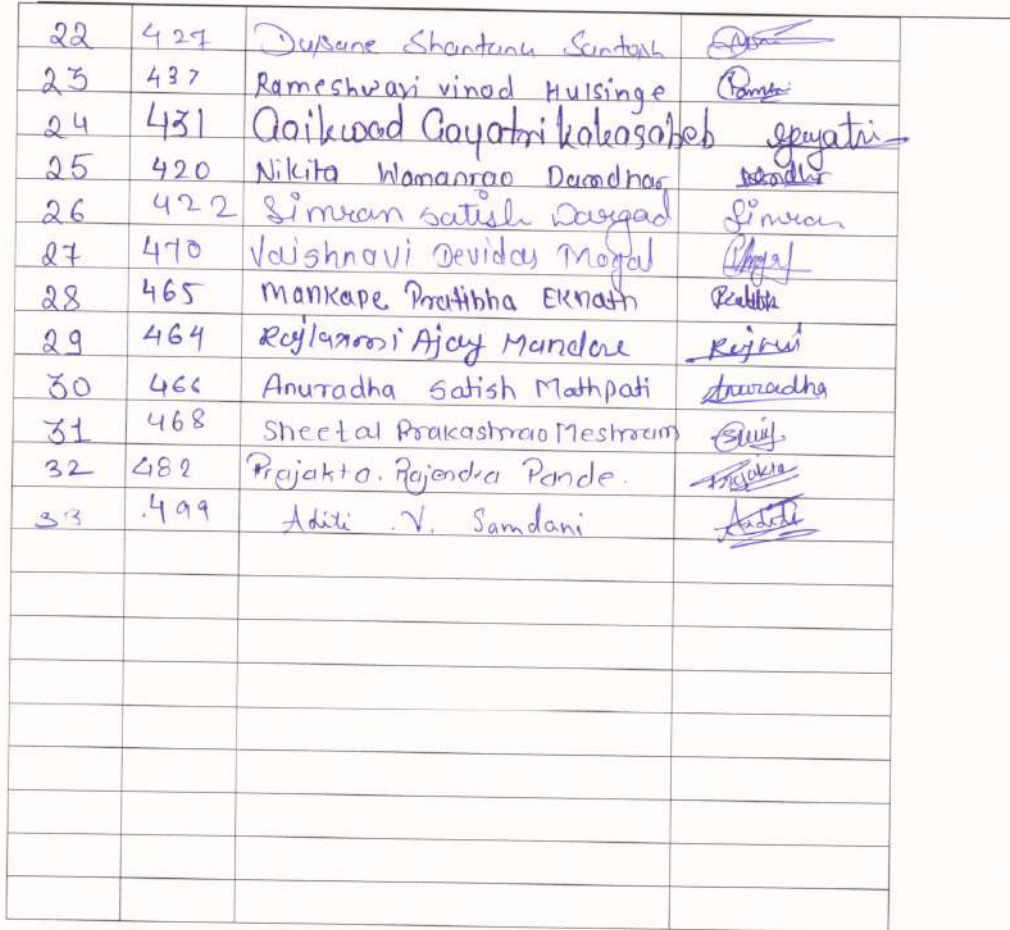 22 427 Dusane Shantanu Santosh
23 437 Rameshwari vinod Hulsinge
24 431 Gaikwad Gayatri kakasaheb Gayatri
25 420 Nikita Wamanrao Damdhar
26 422 Simran satish Dargad Simran
27 470 Vaishnavi Devidas Mogal
28 465 Mankape Pratibha Eknath Pratibha
29 464 Rajlaxmi Ajay Mandore
30 466 Anuradha Satish Mathpati Anuradha
31 468 Sheetal Prakashrao Meshram
32 482 Prajakta. Rajendra Pande. Prajakta
33 499 Aditi .V. Samdani Aditi